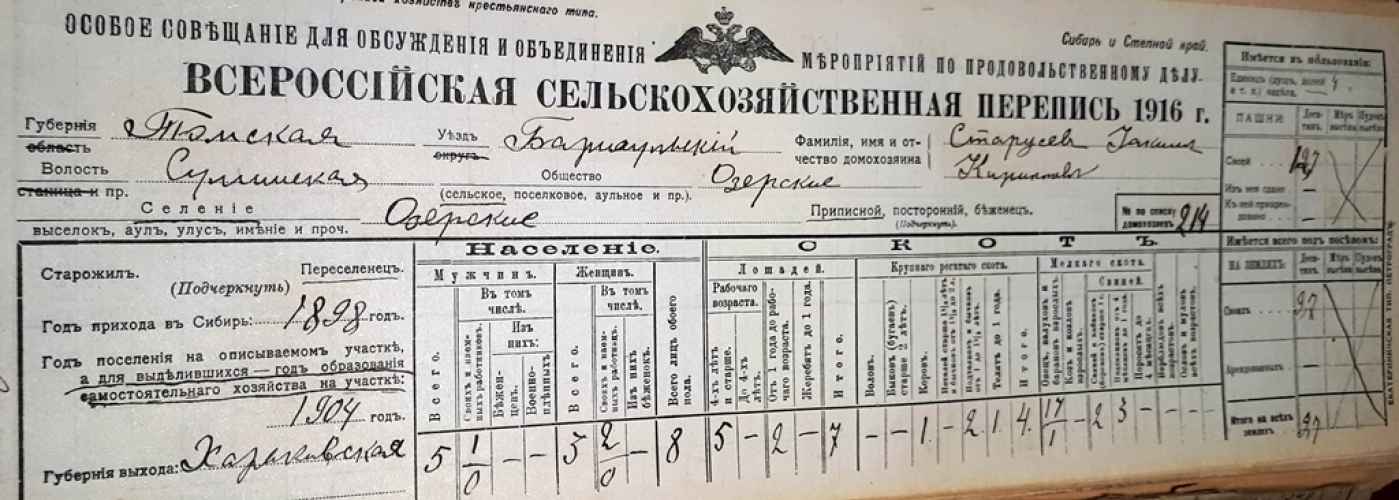 хозяйствъ крестьянскаго типа.
ОСОБОЕ СОВѢЩАНІЕ ДЛЯ ОБСУЖДЕНІЯ И ОБЪЕДИНЕНІЯ МѢРОПРІЯТІЙ ПО ПРОДОВОЛЬСТВЕННОМУ ДѢЛУ.
Сибирь и Степной край.
ВСЕРОССІЙСКАЯ СЕЛЬСКОХОЗЯЙСТВЕННАЯ ПЕРЕПИСЬ 1916 г.
Губернія Томская Уѣздъ Барнаульскій Фамилія, имя и от- Старусев
область округъ чество домохозяина
Волость Общество Озерские
станица и пр. (сельское, поселковое, аульное и пр.)
Селеніе Озерские Приписной, посторонній, бѣженецъ.
выселокъ, аулъ, улусъ, имѣніе и проч. (Подчеркнуть)
№ по списку
домохозяевъ 214
Старожилъ. Переселенецъ.
(Подчеркнуть)
Годъ прихода въ Сибирь: 1898 годъ.
Годъ поселенія на описываемомъ участкѣ,
а для выдѣлившихся — годъ образованія
самостоятельнаго хозяйства на участкѣ:
1904 годъ.
Губернія выхода: Харьковская
Населеніе.
Мужчинъ. Женщинъ.
Всего.
Въ томъ числѣ.
Своихъ и наем-
ныхъ работниковъ.
Изъ нихъ:
Бѣжен-
цевъ.
Военно-
плѣнныхъ
Всего.
Въ томъ числѣ.
Своихъ и наем-
ныхъ работницъ.
Изъ нихъ
бѣженокъ.
Всего лицъ обоего
пола.
5 1/0 – – 3 2/0 – 8
СКОТЪ
Лошадей.
Рабочаго возраста.
4-хъ лѣтъ
и старше.
До 4-хъ
лѣтъ.
Отъ 1 года до рабо-
чаго возраста.
Жеребятъ до 1 года.
Итого.
5 – 2 – 7
Крупнаго рогатаго скота.
Воловъ.
Быковъ (бугаевъ)
старше 2 лѣтъ.
Коровъ.
Телятъ до 1 года.
Итого.
– – 1 – 2 1 4
Мелкаго скота.
Овецъ, валуховъ и
барановъ взрослыхъ.
Козъ и козловъ
Свиней.
17/1 – 2 3 – – – –
Имѣется въ пользованіи:
4
ПАШНИ: Деся-
тинъ.
Своей
Изъ нея сдано –
Имѣется всего подъ посѣвомъ:
НА ЗЕМЛЯХЪ: Деся-
тинъ.
Своихъ
Арендованныхъ –
Итого на всѣхъ
земляхъ